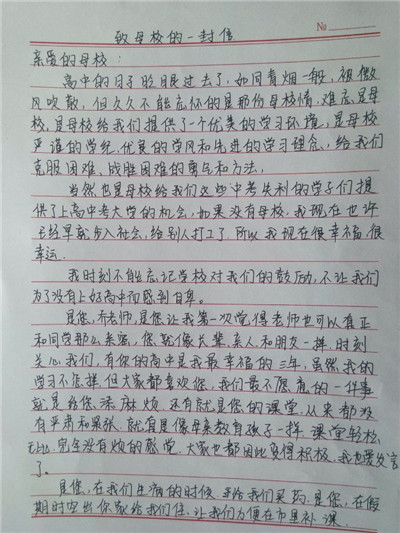 No
致母校的一封信
亲爱的母校：
高中的日子眨眼过去了，如同青烟一般，被微
风吹散，但久久不能忘怀的是那份母校情，难忘是母
校，是母校给我们提供了一个优美的学习环境，是母校
严谨的学纪，优良的学风和先进的学习理念，给我们
克服困难，战胜困难的勇气和方法，
当然也是母校给我们这些中考失利的学子们提
供了上高中考大学的机会，如果没有母校，我现在也许
已经早就步入社会，给别人打工了。所以我现在很幸福，很
幸运．
我时刻不能忘记学校对我们的鼓励，不让我们
为了没有上好高中而感到自卑。
是您，乔老师，是您让我第一次觉得老师也可以真正
和同学那么亲密，您就像长辈，亲人和朋友一样，时刻
关心我们，有你的高中是我最幸福的三年，虽然，我的
学习不怎样，但大家都喜欢您，我们最不愿意的一件事
就是给您添麻烦，还有就是您的课堂，从来都没
有严肃和紧张，就真是像母亲教育孩子一样，课堂轻松
无比，完全没有烦的感觉，大家也都因此变得积极，我也要发言
了。
是您，在我们生病的时候，来给我们买药，是您，在假
期时空出你家给我们住，让我们方便在市里补课．